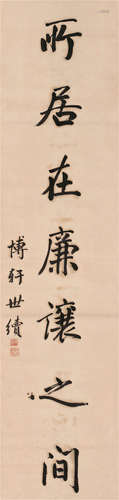 所居在廉讓之间
博轩世續